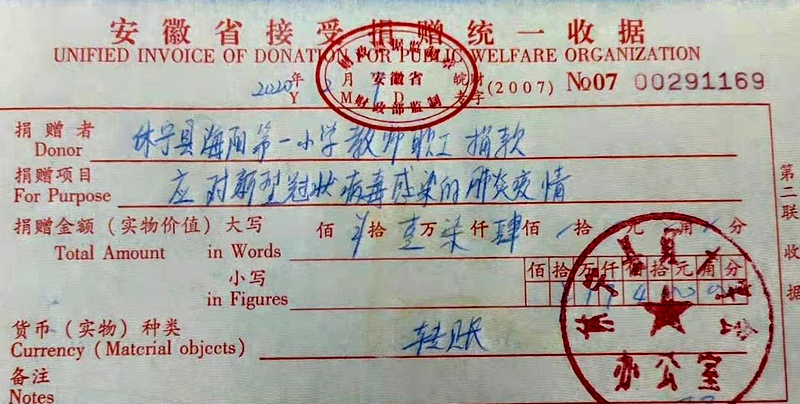 安徽省接受捐赠统一收据
UNIFIED INVOICE OF DONATION FOR PUBLIC WELFARE ORGANIZATION
安徽省
财政部监制
2020年 2月 皖财 (2007) №07 00291169
Y M D
捐赠者 休宁县海阳第一小学教师职工捐款
Donor
捐赠项目 应对新型冠状病毒感染的肺炎疫情
For Purpose
捐赠金额（实物价值）大写 佰 拾壹万柒仟肆佰 拾 元 角 分
Total Amount in Words
小写 佰拾万仟佰拾元角分
in Figures
货币（实物）种类 转账
Currency (Material objects)
备注
Notes
第二联收据
办公室